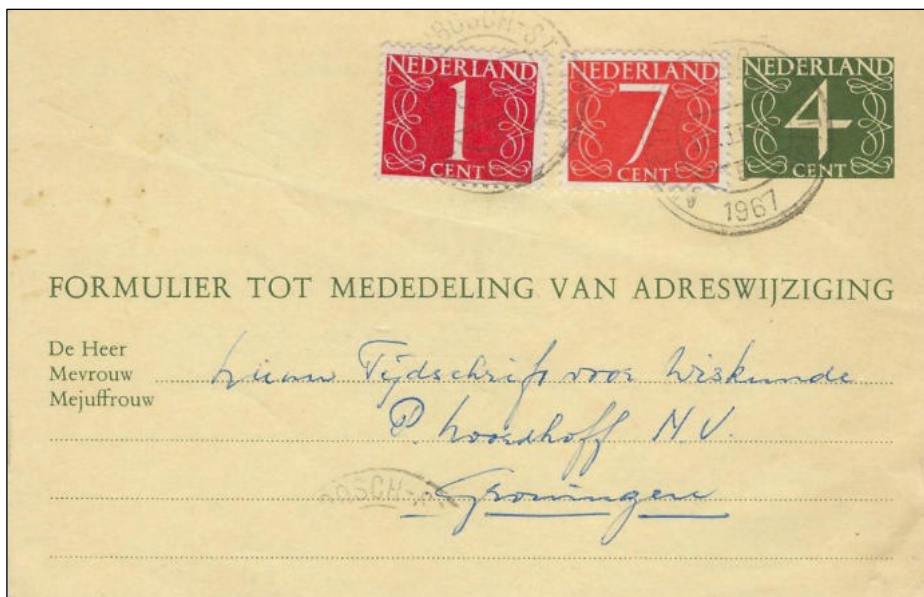 BOSCH-ST
NEDERLAND NEDERLAND NEDERLAND
1 7 4
CENT CENT CENT
1967
FORMULIER TOT MEDEDELING VAN ADRESWIJZIGING
De Heer
Mevrouw
Mejuffrouw
Nieuw Tijdschrift voor Wiskunde
P. Noordhoff N.V.
BOSCH
Groningen